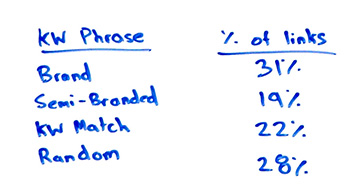 KW Phrase % of links
Brand 31%
Semi-Branded 19%
KW Match 22%
Random 28%